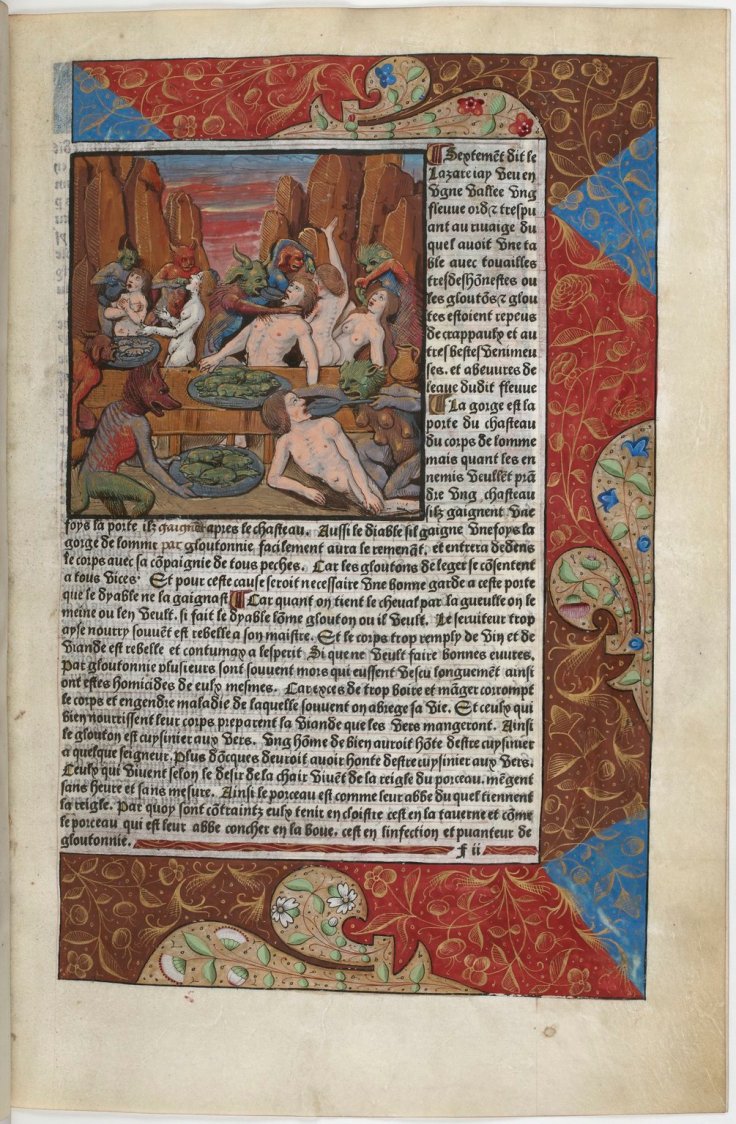 Septemēt dit le
Lazare iay veu en
vgne vallee vng
fleuue ord & trespu
ant au riuaige du
quel auoit vne ta
ble auec touailles
tresdeshōnestes ou
les gloutōs & glou
tes estoient repeus
de crappaulx et au
tres bestes venimeu
ses. et abeuures de
leaue dudit fleuue
La gorge est la
porte du chasteau
du corps de lomme
mais quant les en
nemis veullēt prā
dre vng chasteau
silz gaignent vne
foys la porte ilz gaignēt apres le chasteau. Aussi le diable sil gaigne vnefoys la
gorge de lomme par gloutonnie facilement aura le remenāt. et entrera dedens
le corps auec sa cōpaignie de tous peches. Car les gloutons de leger se cōsentent
a tous vices. Et pour ceste cause seroit necessaire vne bonne garde a ceste porte
que le dyable ne la gaignast Car quant on tient le cheual par la gueulle on le
meine ou len veult. si fait le dyable lōme glouton ou il veult. Le seruiteur trop
ayse nourry souuēt est rebelle a son maistre. Et le corps trop remply de vin et de
viande est rebelle et contumax a lesperit Si que ne veult faire bonnes euures.
Par gloutonnie plusieurs sont souuent mors qui eussent vescu longuemēt ainsi
ont estes homicides de eulx mesmes. Car exces de trop boire et māger corrompt
le corps et engendre maladie de laquelle souuent on abrege sa vie. Et ceulx qui
bien nourrissent leur corps preparent la viande que les vers mangeront. Ainsi
le glouton est cuysinier aux vers. vng hōme de bien auroit hōte destre cuysinier
a quelque seigneur. Plus dōcques deuroit auoir honte destre cuysinier aux vers.
Ceulx qui viuent selon le desir de la chair viuēt de la reigle du porceau. mēgent
sans heure et sans mesure. Ainsi le porceau est comme leur abbe du quel tiennent
la reigle. Par quoy sont cōtraintz eulx tenir en cloistre cest en la tauerne et cōme
le porceau qui est leur abbe concher en la boue. cest en linfection et puanteur de
gloutonnie.
f ii